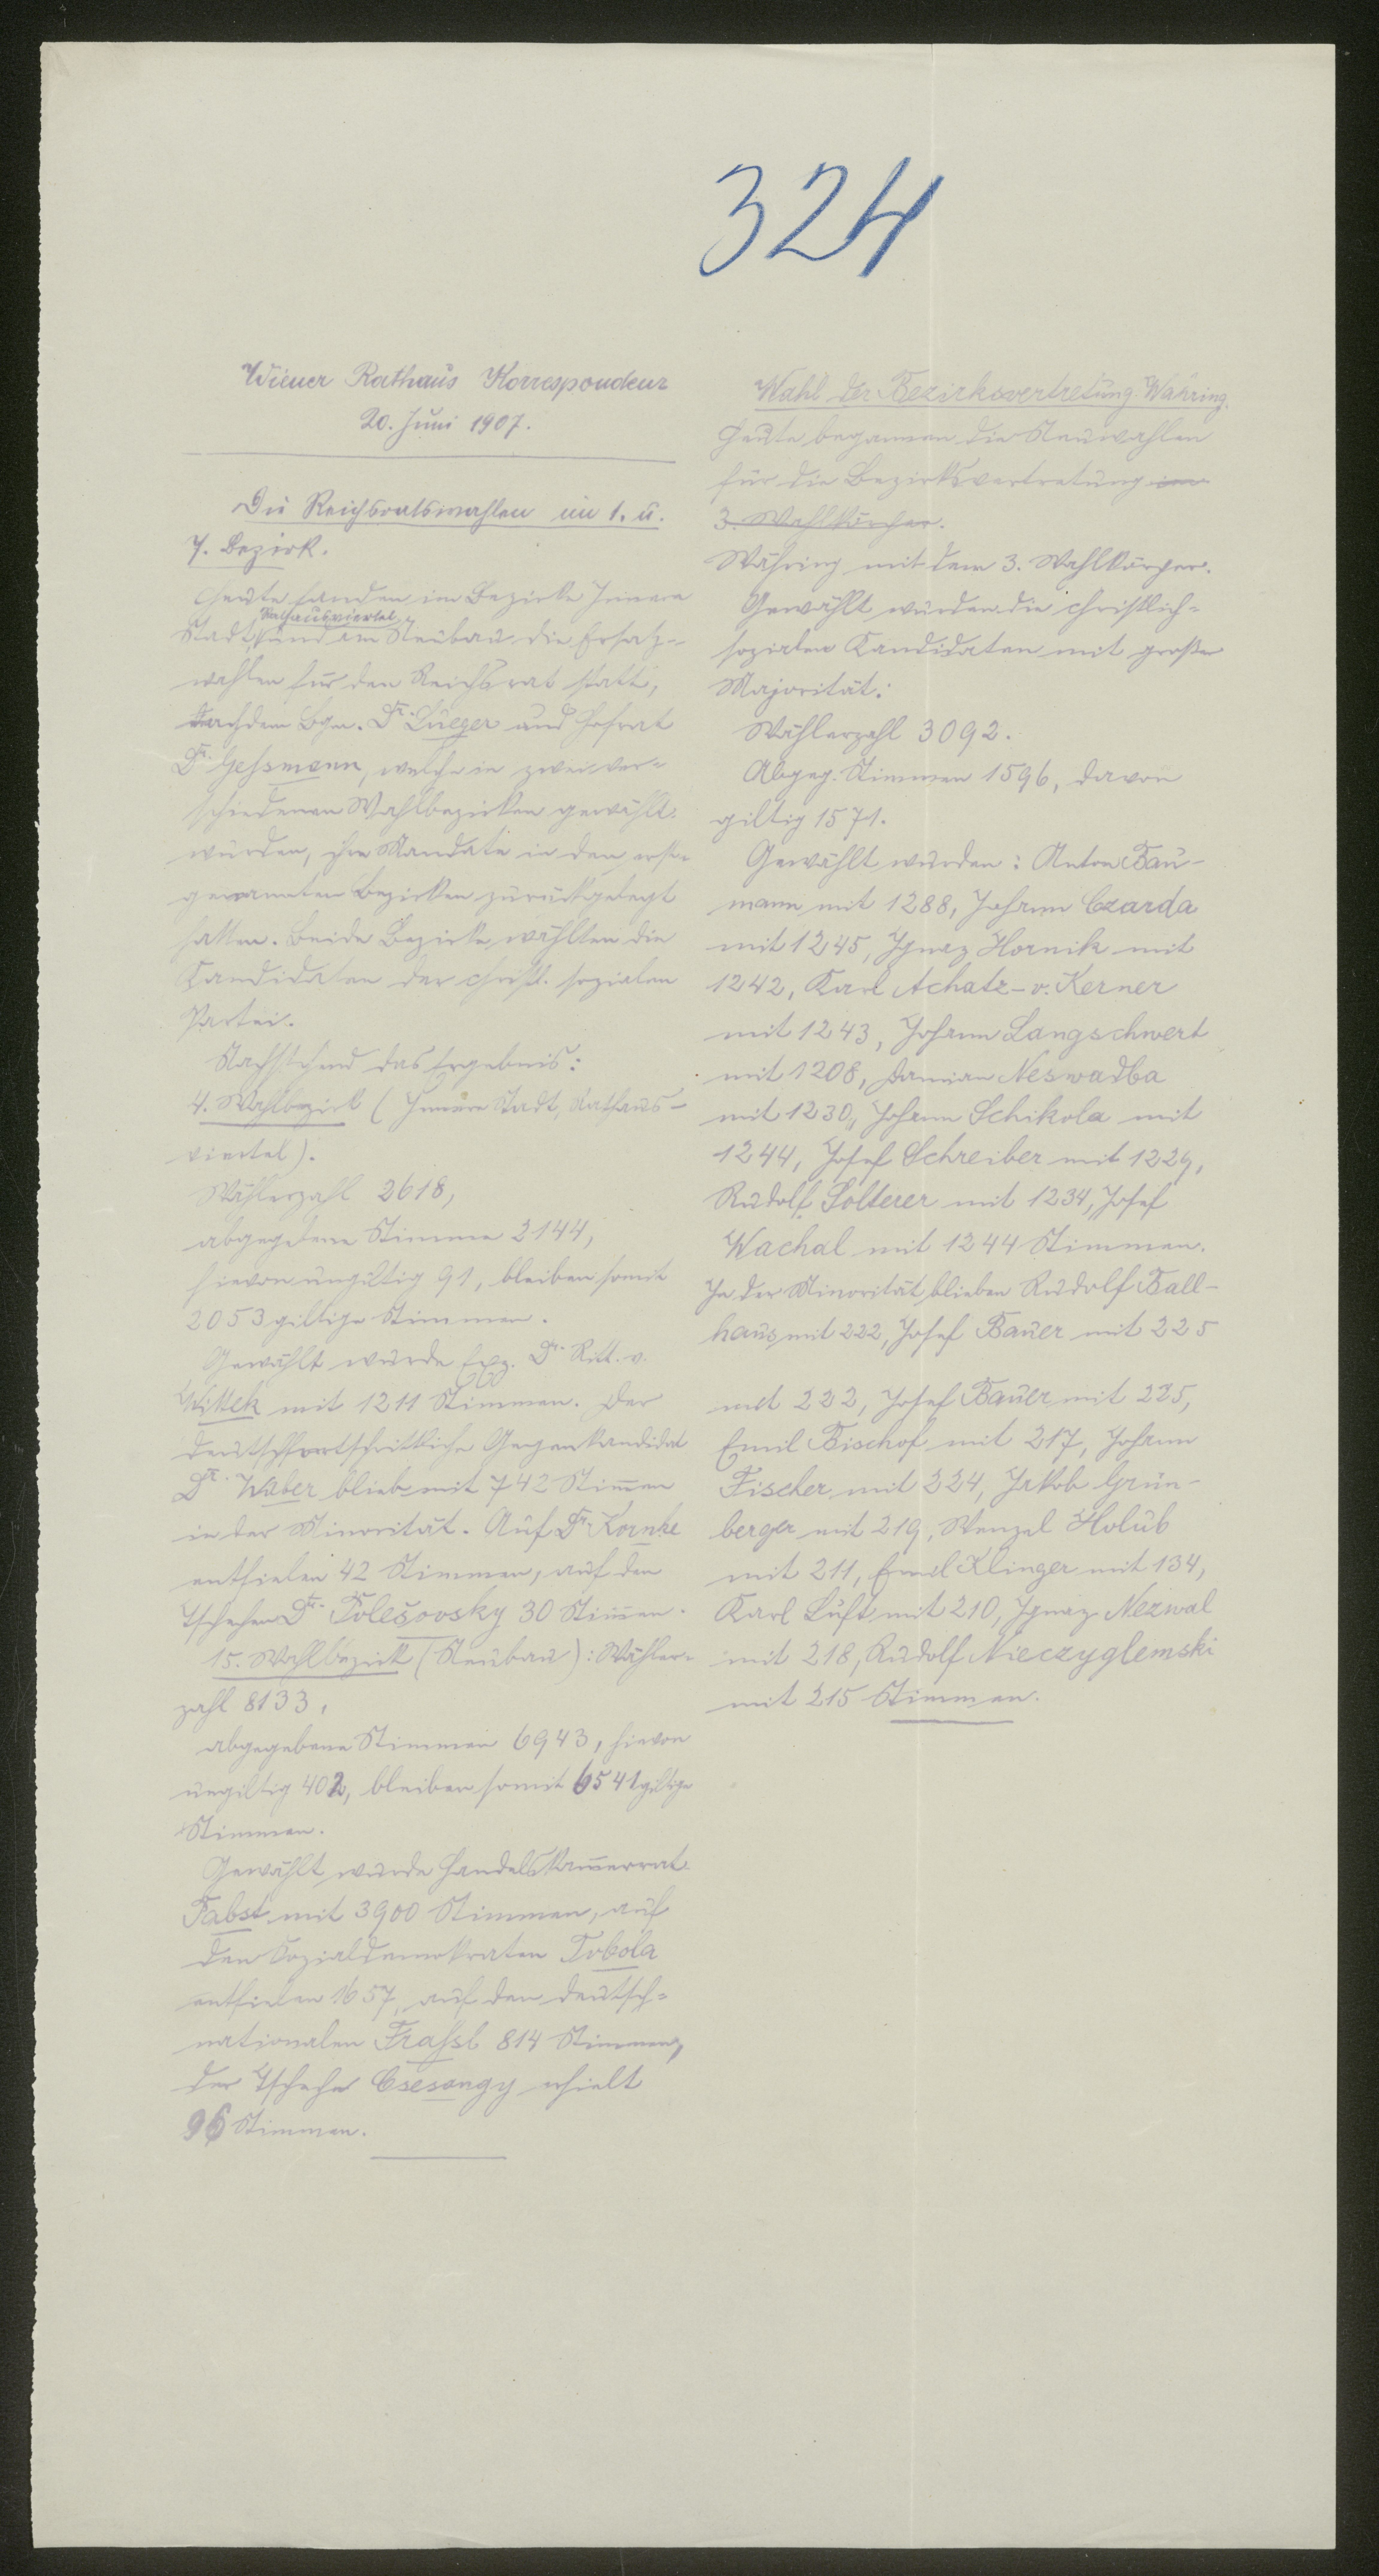 324
Wiener Rathaus Korrespondenz
20. Juni 1907.
Die Reichsratswahlen im 1. u.
7. Bezirk.
Heute fanden im Bezirke Innere
Rathausviertel
Stadt, und am Neubau die Ersatz-
wahlen für den Reichsrat statt,
nachdem Bgm. Dr. Lueger und Hofrat
Dr. Gessmann, welche in zwei ver-
schiedenen Wahlbezirken gewählt
wurden, ihre Mandate in den erst-
genannten Bezirken zurückgelegt
hatten. Beide Bezirke wählten die
Kandidaten der christl. sozialen
Partei.
Nachstehend das Ergebnis:
4. Wahlbezirk (Innere Stadt, Rathaus-
viertel).
Wählerzahl 2618,
abgegebene Stimmen 2144,
hievon ungiltig 91, bleiben somit
2053 giltige Stimmen.
Gewählt wurde Exz. Dr. Ritt. v.
Wittek mit 1211 Stimmen. Der
deutschfortschrittliche Gegenkandidat
Dr. Waber blieb mit 742 Stimmen
in der Minorität. Auf Dr. Kornke
entfielen 42 Stimmen, auf den
Tschechen Dr. Polešovsky 30 Stimmen.
15. Wahlbezirk (Neubau): Wähler-
zahl 8133,
abgegebene Stimmen 6943, hievon
ungiltig 402, bleiben somit 6541 giltige
Stimmen.
Gewählt wurde Handelskammerrat
Pabst mit 3900 Stimmen, auf
den Sozialdemokraten Tobola
entfielen 1657, auf den deutsch-
nationalen Frassl 814 Stimmen,
der Tscheche Csesangy erhielt
96 Stimmen.
Wahl der Bezirksvertretung Währing.
Heute begannen die Neuwahlen
für die Bezirksvertretung im
3. Wahlkörper.
Währing mit dem 3. Wahlkörper.
Gewählt wurden die christlich-
sozialen Kandidaten mit großer
Majorität:
Wählerzahl 3092.
Abgeg. Stimmen 1596, davon
giltig 1571.
Gewählt wurden: Anton Bau-
mann mit 1288, Johann Czarda
mit 1245, Ignaz Hornik mit
1242, Karl Achatz-v. Kerner
mit 1243, Johann Langschwert
mit 1208, Damian Neswadba
mit 1230, Johann Schikola mit
1244, Josef Schreiber mit 1229,
Rudolf Solterer mit 1234, Josef
Wachal mit 1244 Stimmen.
In der Minorität blieben Rudolf Ball-
haus mit 222, Josef Bauer mit 225
mit 222, Josef Bauer mit 225,
Emil Bischof mit 217, Johann
Fischer mit 224, Jakob Grün-
berger mit 219, Wenzel Holub
mit 211, Emil Klinger mit 134,
Karl Luft mit 210, Ignaz Nezwal
mit 218, Rudolf Nieczyglemski
mit 215 Stimmen.